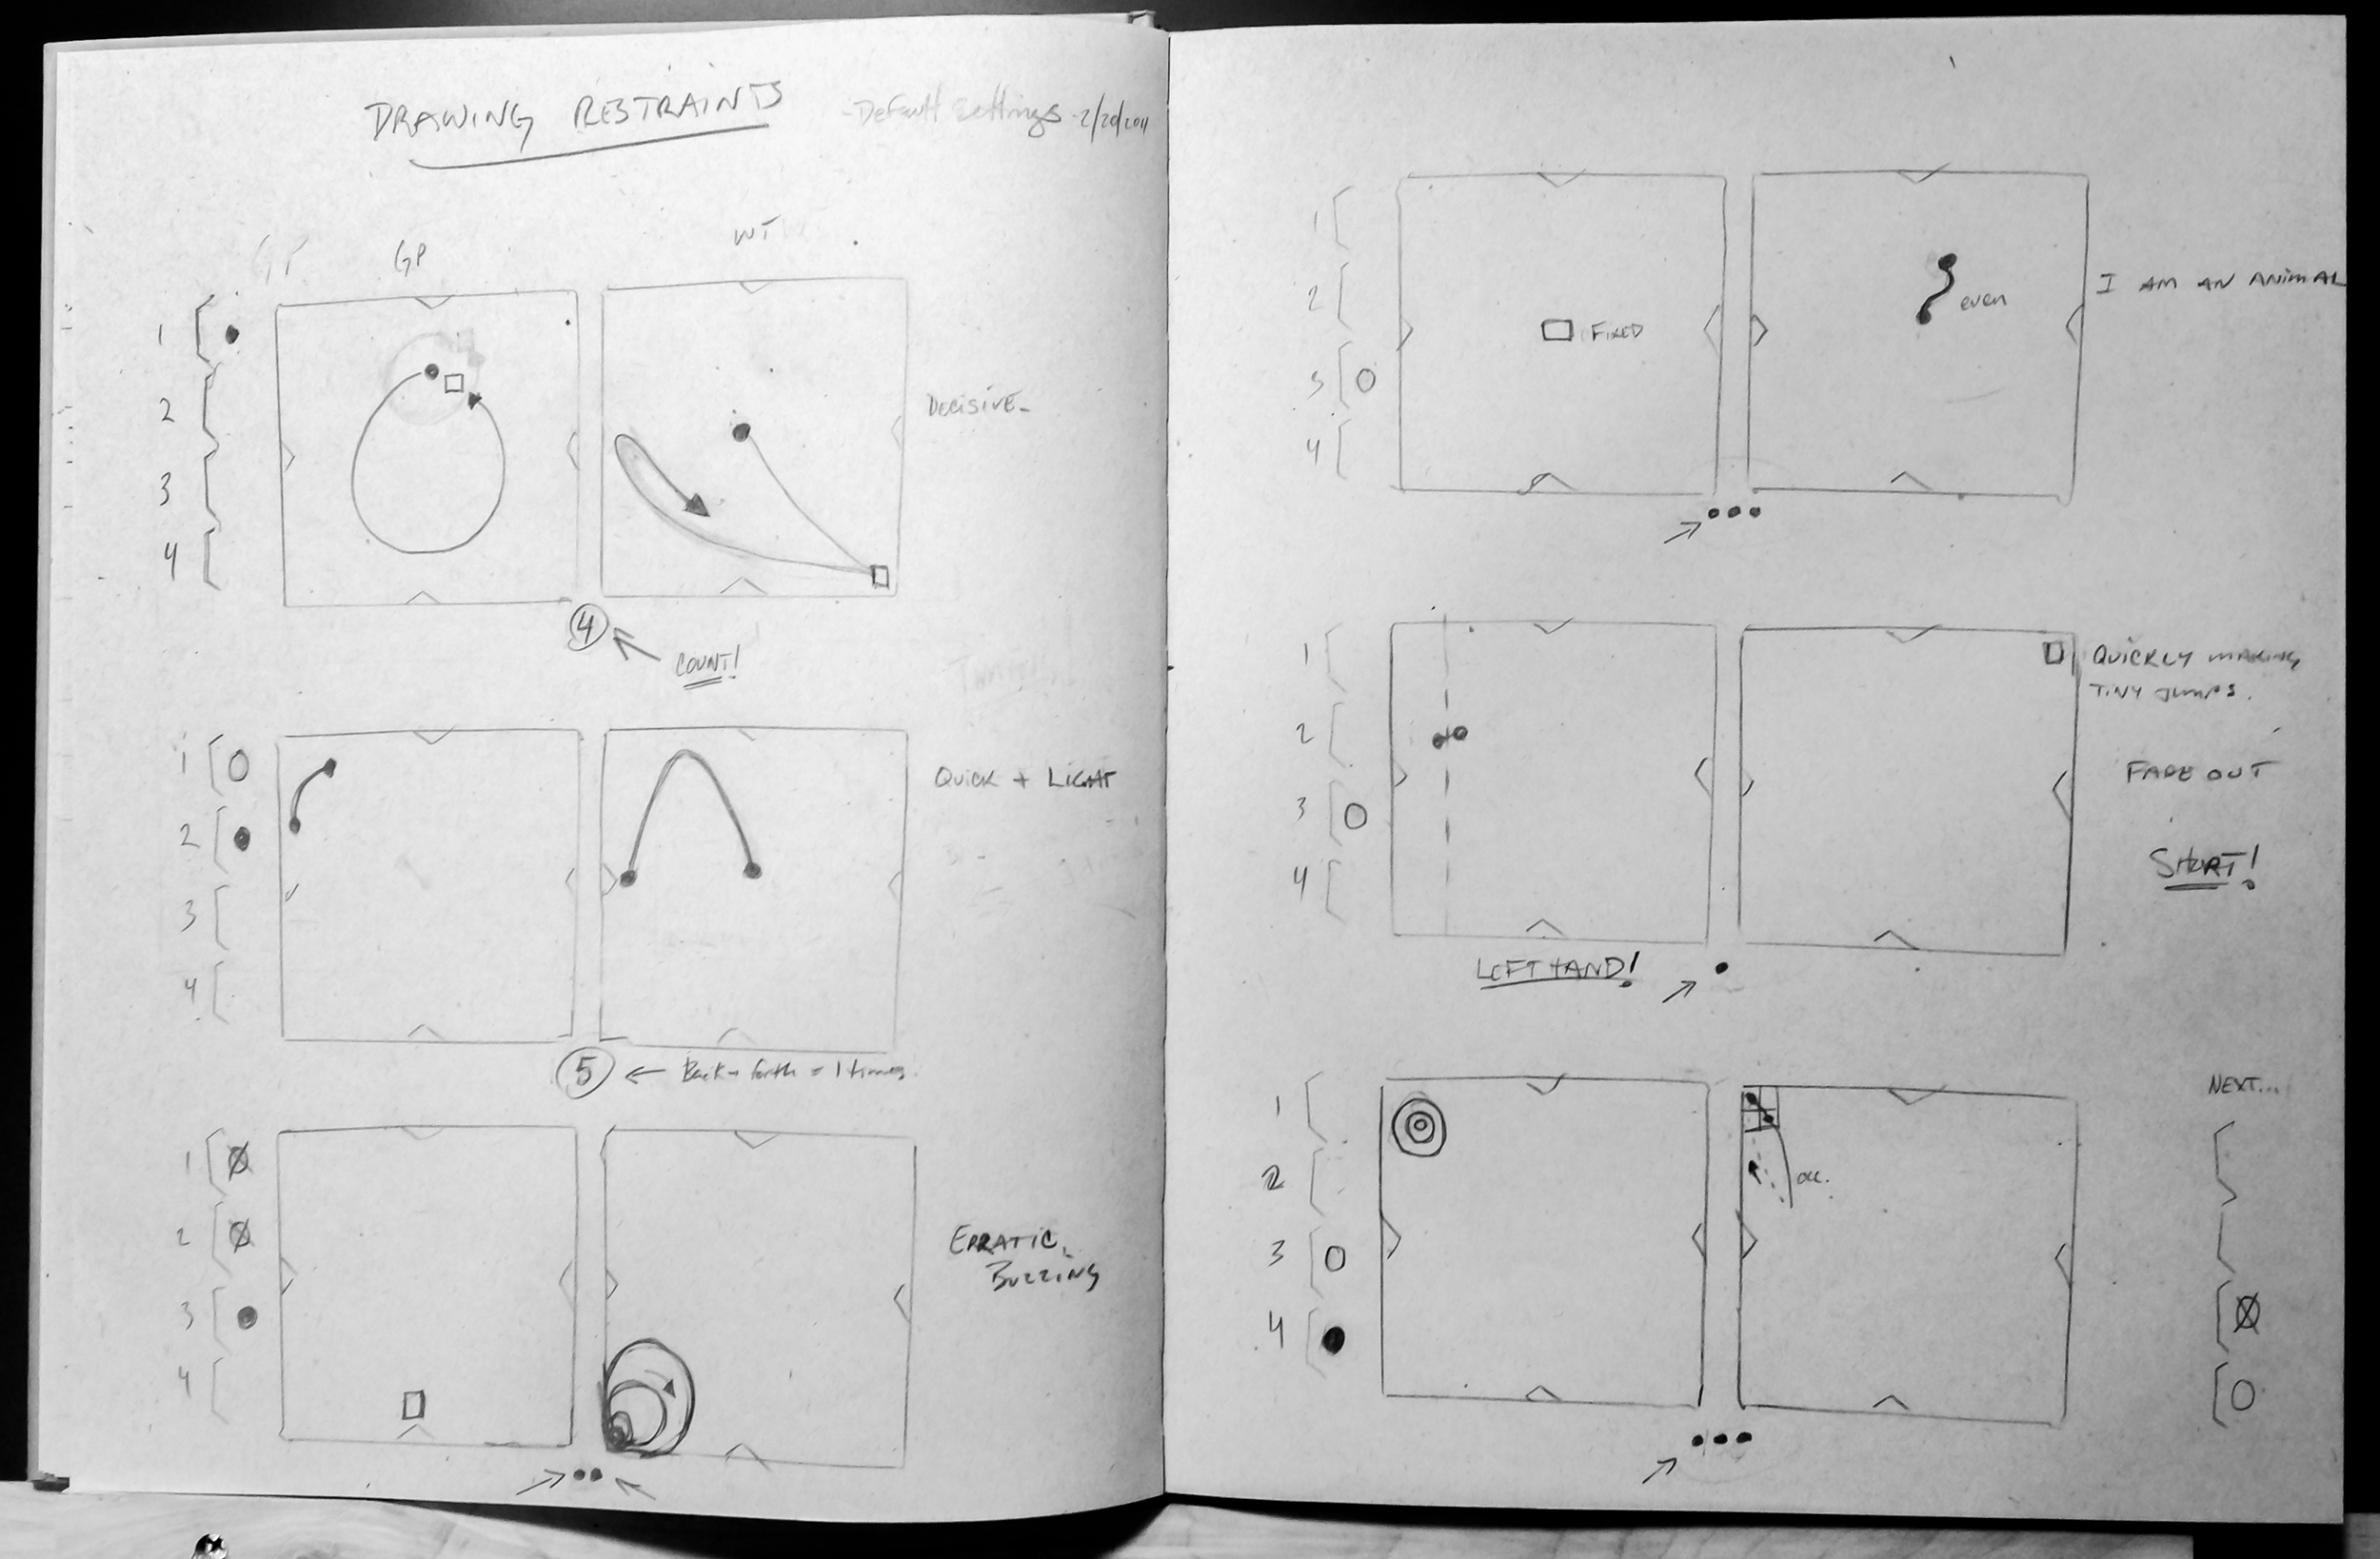 DRAWING RESTRAINTS
-Default settings 2/20/2011
GP
WT
1
2
3
4
DECISIVE-
4
COUNT!
1
2
3
4
QUICK + LIGHT
5
Back + forth = 1 times.
1
2
3
4
ERRATIC,
BUZZING
1
2
3
4
FIXED
even
I AM AN ANIMAL
1
2
3
4
QUICKLY MAKING
TINY JUMPS.
FADE OUT
SHORT!
LEFT HAND!
1
2
3
4
NEXT...